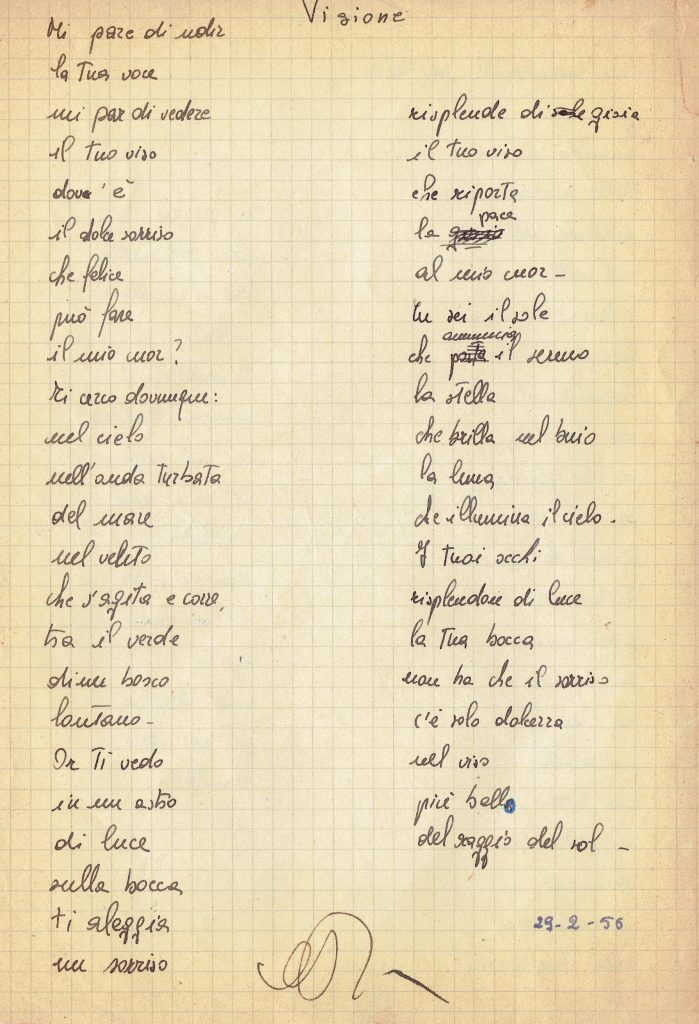 Visione
Mi pare di udir
la tua voce
mi par di vedere
il tuo viso
dove' è
il dolce sorriso
che felice
può fare
il mio cuor?
Ti cerco dovunque:
nel cielo
nell'onda turbata
del mare
nel vento
che s'agita e corre,
tra il verde
di un bosco
lontano-
Or ti vedo
in un astro
di luce
sulla bocca
ti aleggia
un sorriso
risplende di gioia
il tuo viso
che riporta
la pace
al mio cuor-
Tu sei il sole
che annuncia il sereno
la stella
che brilla nel buio
la luna
che illumina il cielo.
I tuoi occhi
risplendon di luce
la tua bocca
non ha che il sorriso
c'è solo dolcezza
nel viso
più bello
del raggio del sol-
29-2-56